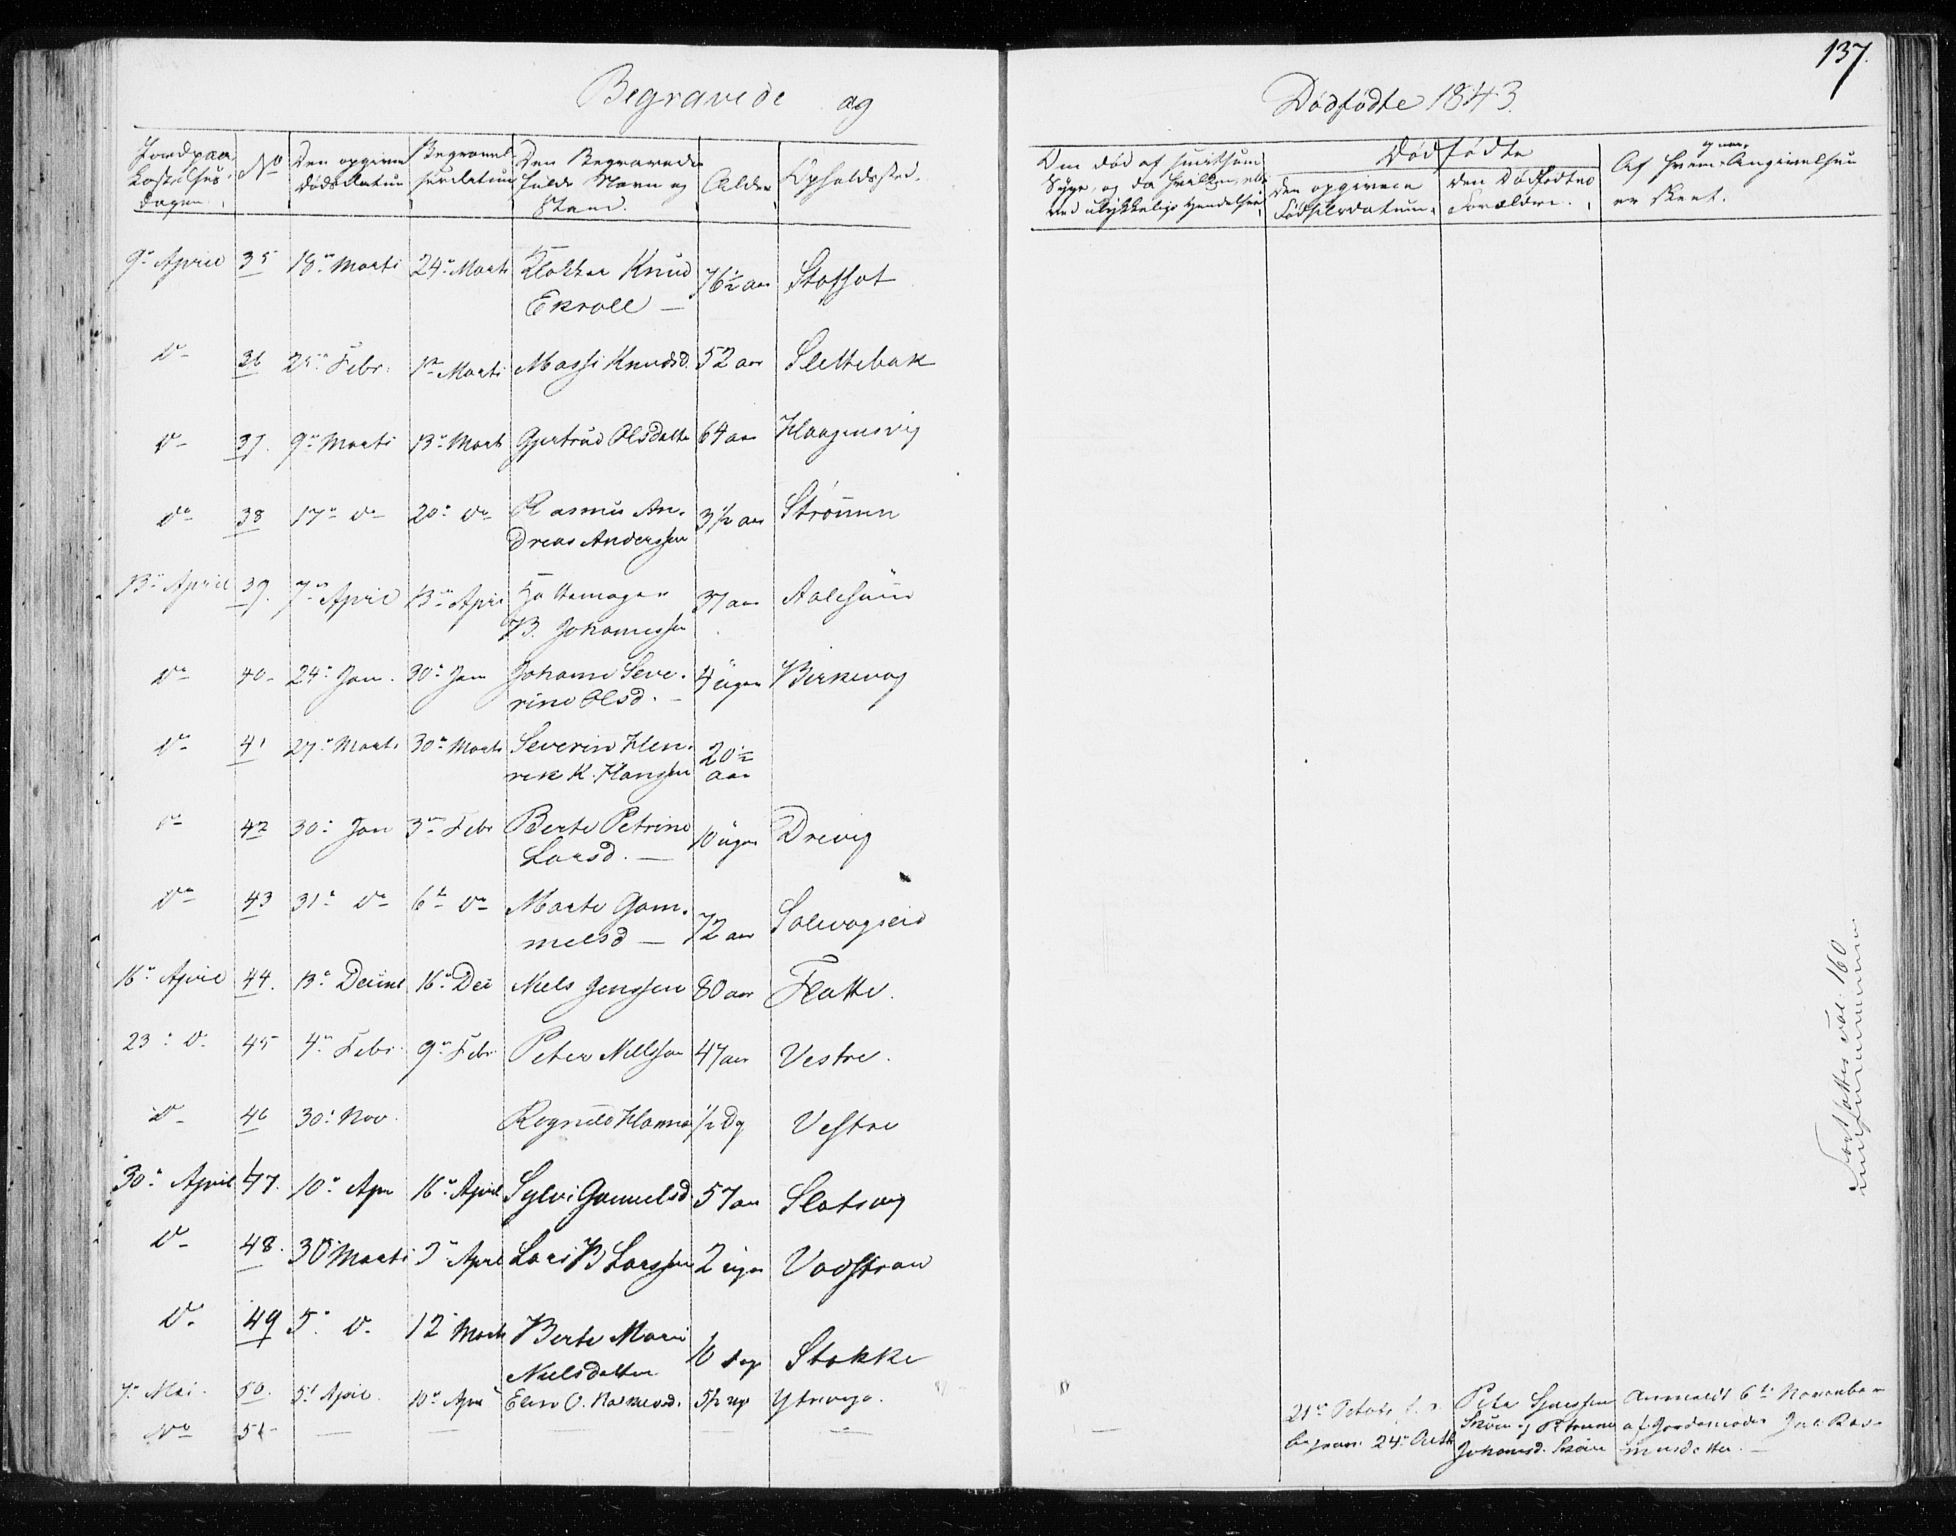 137.
Begravede og Dødfødte 1843.
Jordpaa-
kastelses-
dagen.
No
Den opgivne
Dødsdatum
Begravel-
sesdatum
Den Begravedes
fulde Navn og
Stand.
Alder
Opholdssted.
Den død af smitsom
Syge, og da hvilken, eller
ved ulykkelige Hændelser
Dødfødte
Den opgivne
Fødselsdatum.
Den Dødfødtes
Forældre.
Af hvem og naar Angivelsen
er skeet.
9de April 35 18de Marts 24de Marts Klokker Knud
Ekroll — 76½ aar
Do 36 25de Febr. 1ste Marts Massi Knudsd. 52 aar Slettebak
Do 37. 9de Marts 13de Marts Gjertrud Olsdatter 64 aar Haagensvig
Do 38 17de Do 20de Do Rasmus An-
dreas Anderssen 3½ aar Strømmen
13de April 39. 7de April 13de April Hattemager
B. Johannessen 37 aar Aalesund
Do 40 24de Jan. 30de Jan Johanne Seve-
rine Olsd. — 4 uger Birkevog
Do 41 27de Marts 30de Marts Severin Hen-
rik K. Hanssen 20½
aar
Do 42 30de Jan 3de Febr Berte Petrine
Larsd. — 10 uger Drevig
Do 43 31te Do 6te Do Marte Gam-
melsd — 72 aar Solevogseid
16de April 44. 13de 16de Dec Niels Jenssen 80 aar Flatte.
23de Do 45 4de Febr. 9de Febr Peter Nilssen 47 aar Vestre.
Do 46 30te Nov. Ragnild Hanna ½ Dg Vestre
30te April 47. 10de Apr 16de April Sylvi Gammelsd. 57 aar Slotsvig
Do 48. 30 Marts 3de April Lars B Larssen 2 uger Vadstran
Do 49 5te Do 12 Marts Berte Marie
Nielsdatter 10 Stokke
7de Mai. 50. 5te April. 10de April Elen O. 5½
Do 51 — — — — — —
21de
begrav. 24de
Peter
og Petrine
Johansd.
Anmeldt 6te November
af Jordemoder Ras-
musdatter. —
Fortsættes Fol. 160